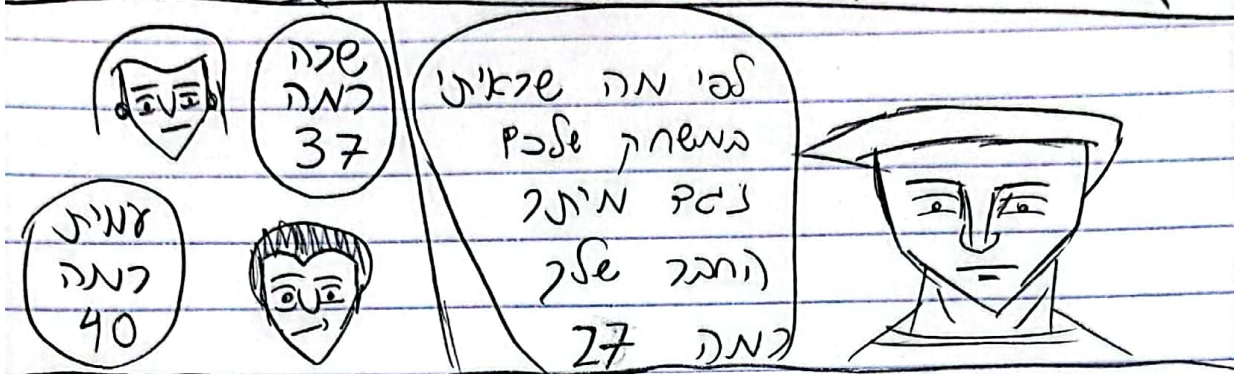 לפי מה שראיתי
במשחק שלכם
נגד מיתר
החבר שלך
רמה 27
שרה
רמה
37
עמית
רמה
40